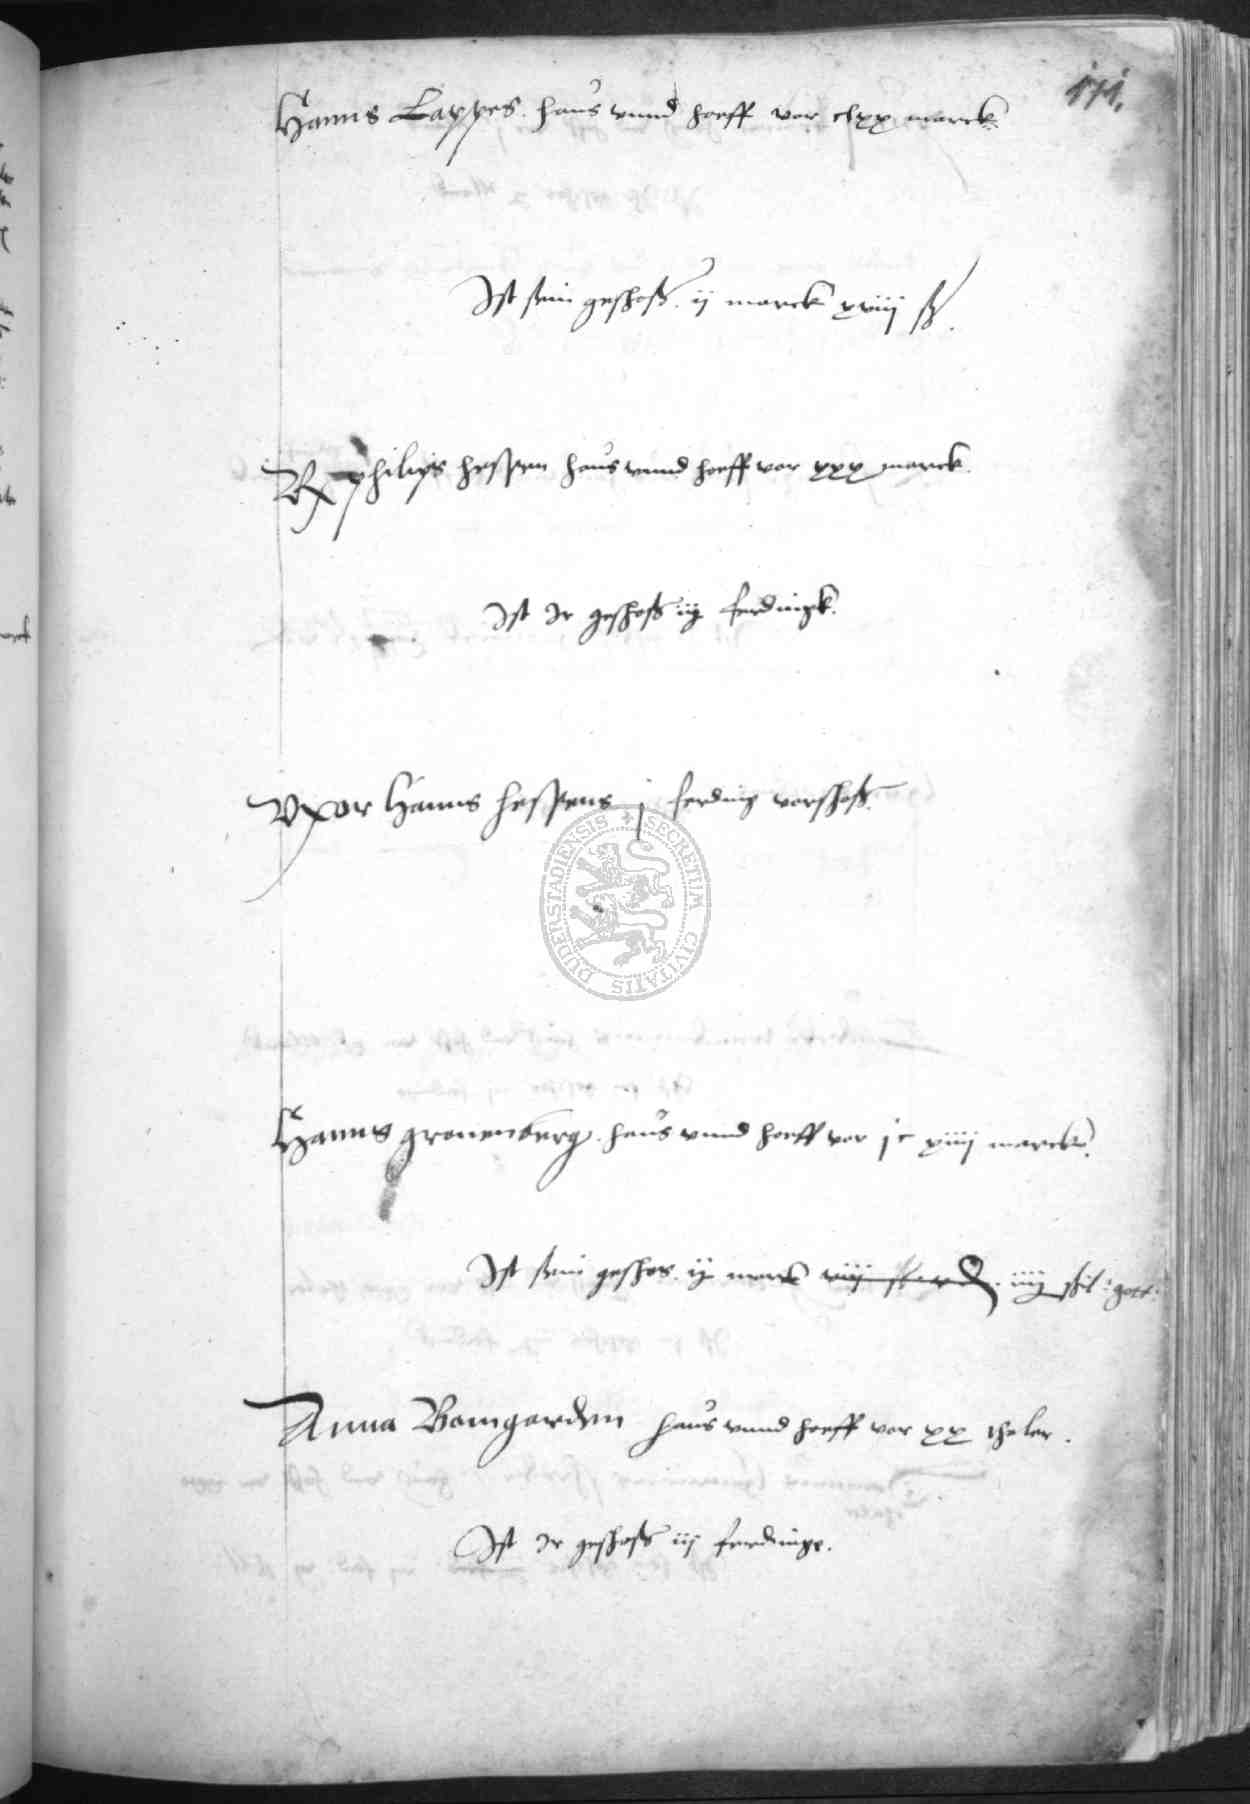 171.
Hanns Lappes. haus vnnd hoeff vor clxx marck
Ist sein geschoß. ij marck xviij ß.
Vx philips hessen haus vnnd hoeff vor xxx marck.
Ist Ir geschoß iij ferdingk.
Vxor Hanns hessens j ferding vorschoß.
SECRETUM CIVITATIS DUDERSTADIENSIS
Hanns gronenberg. haus vnnd hoeff vor jc xiiij marck.
Ist sein geschos. ij marck viij iiij ßil: gott:
Anna Bomgarden haus vnnd hoeff vor xx thaler.
Ist Ir geschoß iij ferdinge.